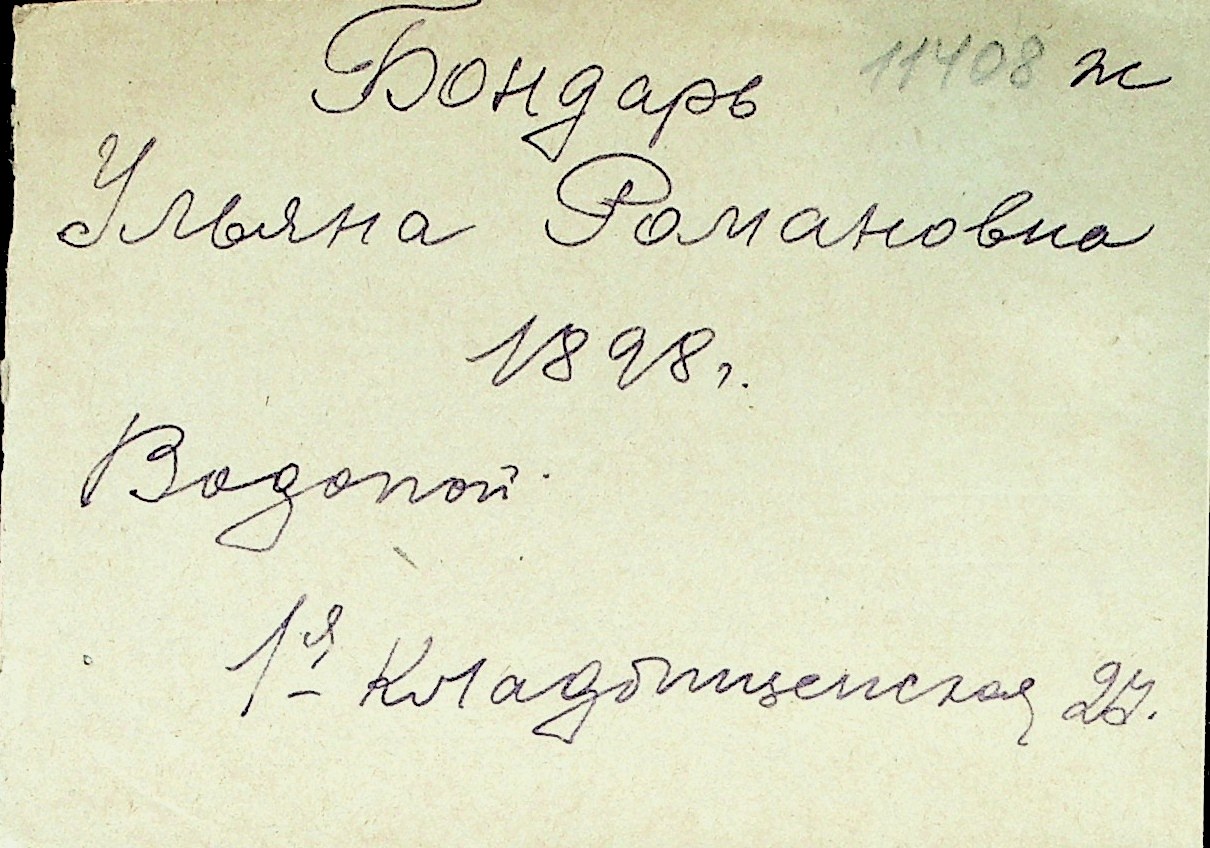 Бондарь 11408 ж
Ульяна Романовна
1898г.
Водопой
1я Кладбищенская 27.